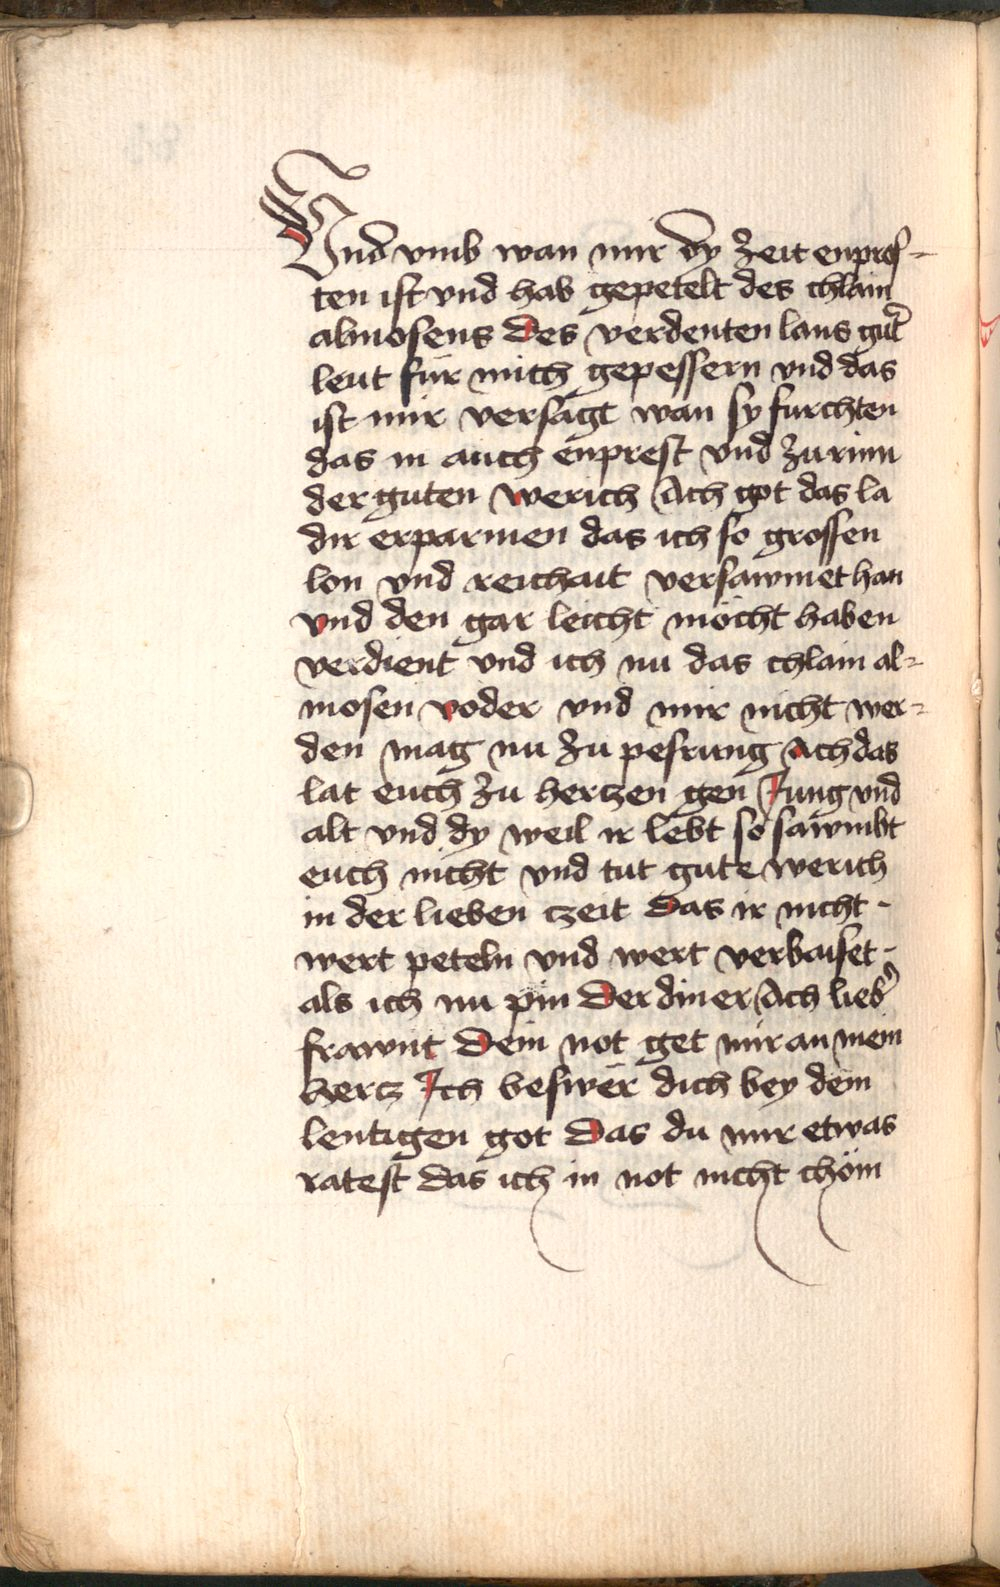 Vnd vmb wan mir dy zeit enpres-
ten ist vnd hab gepetelt des chlain
almosens Des verdenten lans gut̾
leut für mich gepessern vnd das
ist mir versagt wan sy furchten
das in auch enprest vnd zurinn
der guten werich Ach got das la
dir erparmen das ich so grossen
lon vnd reichait versawmet han
vnd den gar leicht möcht haben
verdient vnd ich nu das chlain al-
mosen voder vnd mir nicht wer-
den mag nu zu pesrung Ach das
lat euch zu hertzen gen Jung vnd
alt vnd dy weil ir lebt so sawmbt
euch nicht vnd tut gute werich
in der lieben czeit Das ir nicht -
wert peteln vnd wert verbaiset -
als ich nu pin Der diner Ach lieb̾
frawnt Dein not get mir an mein
hertz Ich beswer dich bey dem
lentigen got Das du mir etwas
ratest das ich in not nicht chöm